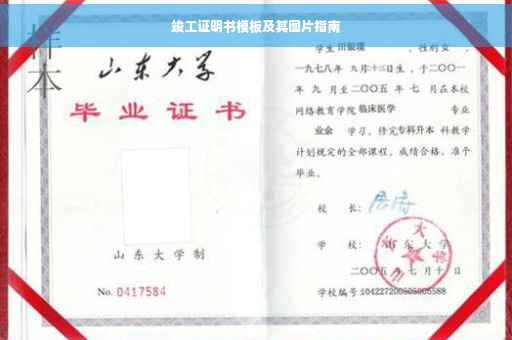 竣工证明书模板及其图片指南
样本
山东大学
毕业证书
山东大学制
No. 0417584
学生田银璞 ，性别女 ，
一九七八年 九月十三日生，于二〇〇一
年 九 月至二〇〇五 年 七 月在本校
网络教育学院 临床医学 专业
业余 学习，修完专科升本 科教学
计划规定的全部课程，成绩合格，准予
毕业。
校 长：
学 校：山东大学
二〇〇五 年 七 月 十 日
学校编号:104227200505005588